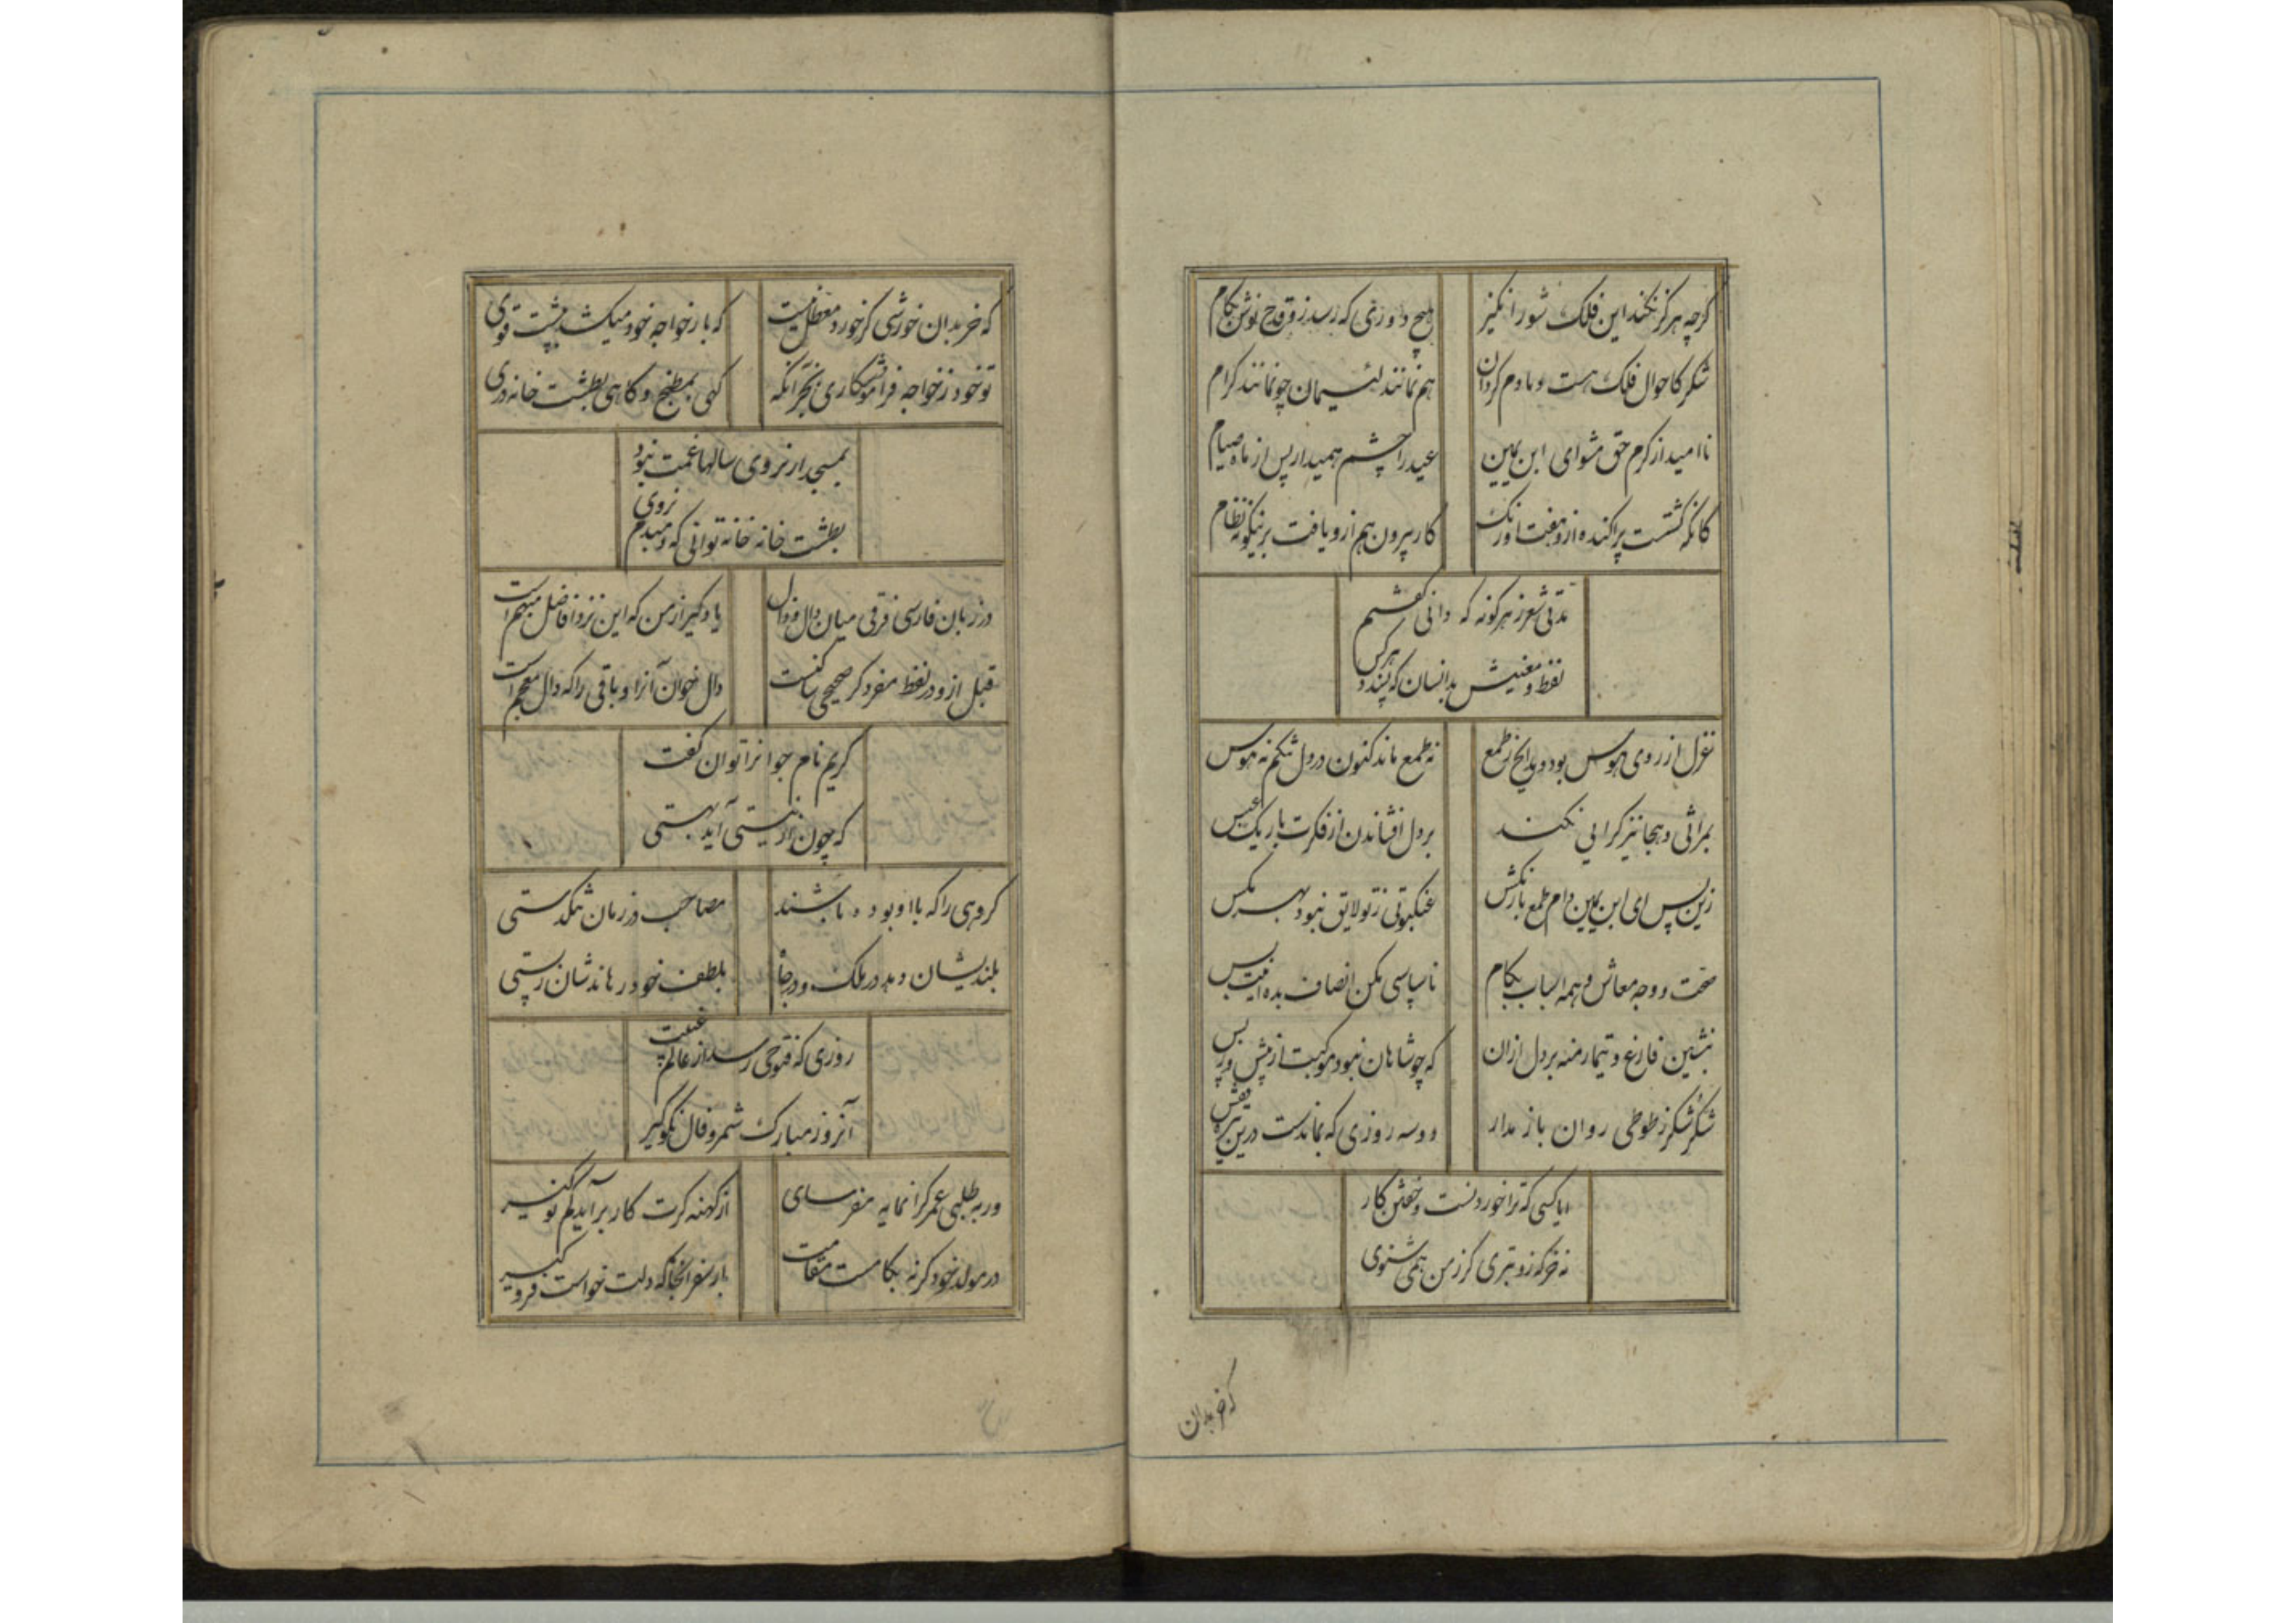 گرچه هرگز نکند این فلک شور انگیز
هیچ دوری که رسد زو قدح نوش بکام
شکر کاحوال فلک هست دمادم گردان
هم نمانند لئیمان چو نمانند کرام
ناامید از کرم حق مشو ای ابن یمین
عید را چشم همیدار پس از ماه صیام
کانکه گشتست پراکنده ازو هفت اورنک
کار پروین هم ازو یافت برینگونه نظام
مدتی شعر ز هر گونه که دانی گفتم
لفظ و معنیش بدانسان که پسندد هر کس
غزل از روی هوس بود و مدایح ز طمع
نه طمع ماند کنون در دل تنگم نه هوس
بمراثی و هجا نیز کرایی نکند
بر دل افشاندن از فکرت باریک
زین سپس ای ابن یمین دام طمع باز مکش
عنکبوتی ز تو لایق نبود بهر مکس
صحت و وجه معاش و همه اسباب بکام
ناسپاسی مکن انصاف بده اینت بس
بنشین فارغ و تیمار منه بر دل ازان
که چو شاهان نبود موکبت از پیش و ز پس
شکر شکر ز طوطی روان باز مدار
دو سه روزی که بماندست درین تیره قفس
ایا کسی که ترا خوردنست و خفتن کار
نه خر که زو بتری گر ز من همی شنوی
که خر بدان
که خر بدان خورشی کز خورد معطل نیست
که بار خواجه خود میکشد به پشت قوی
تو خود ز خواجه فراموشکاری بجز آنکه
کهی بمطبخ و کاهی بطشت خانه دری
بمسجد ار نروی سالها غمت نبود
بطشت خانه خانه توانی که دمبدم نروی
در زبان فارسی فرقی میان دال و ذال
یاد گیر از من که این نزد افاضل مبهم است
قبل ازو در لفظ مفرد گر صحیحی ساکنست
دال خوان آنرا و باقی را که ذال معجم است
کریم نام جوانرا توان گفت
که چون از نیستی آید بهستی
گروهی را که با او بوده باشند
مصاحب در زمان تنگدستی
بلندیشان دهد در ملک و در جاه
بلطف خود رهاندشان ز پستی
روزی که فتوحی رسد از عالم غیبت
آنروز مبارک شمر و فال نکو گیر
ور به طلبی عمر گرانمایه مفرسای
از کهنه گرت کار برآید کم نو گیر
در مولد خود گر نه بکامست مقامت
بار سفر آنجا که دلت خواست فرو گیر